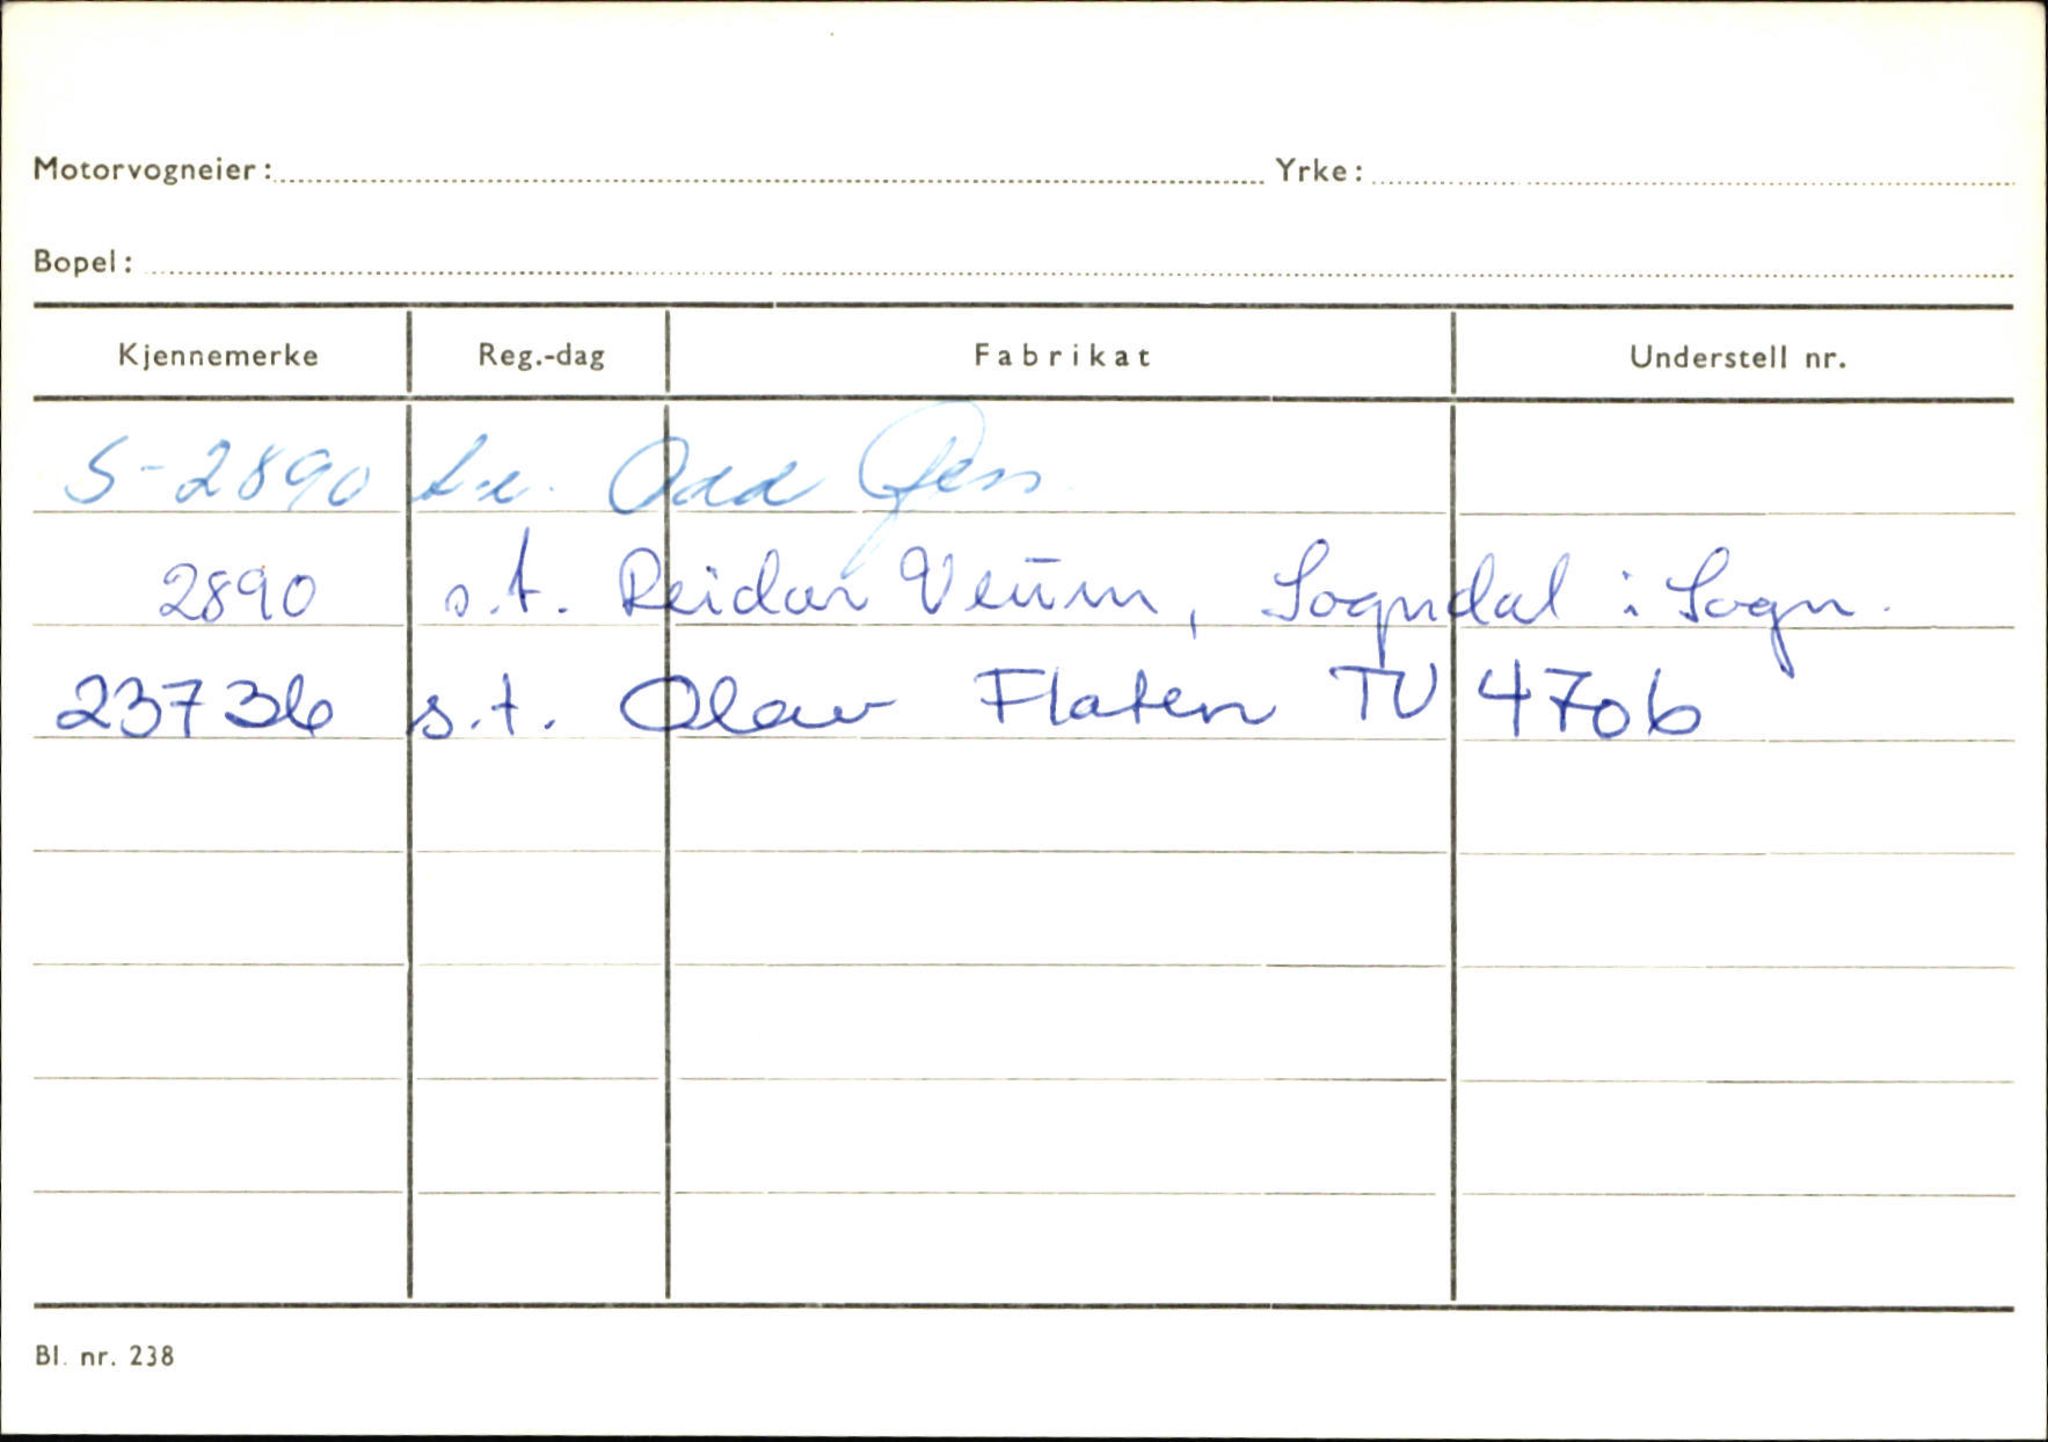 Motorvogneier: Yrke:
Bopel:
Kjennemerke Reg.-dag Fabrikat Understell nr.
S-2890 Odd
2890 s.t. Reidar Veum, Sogndal i Sogn.
23736 s.t. Olav Flaten TV 4706
Bl. nr. 238